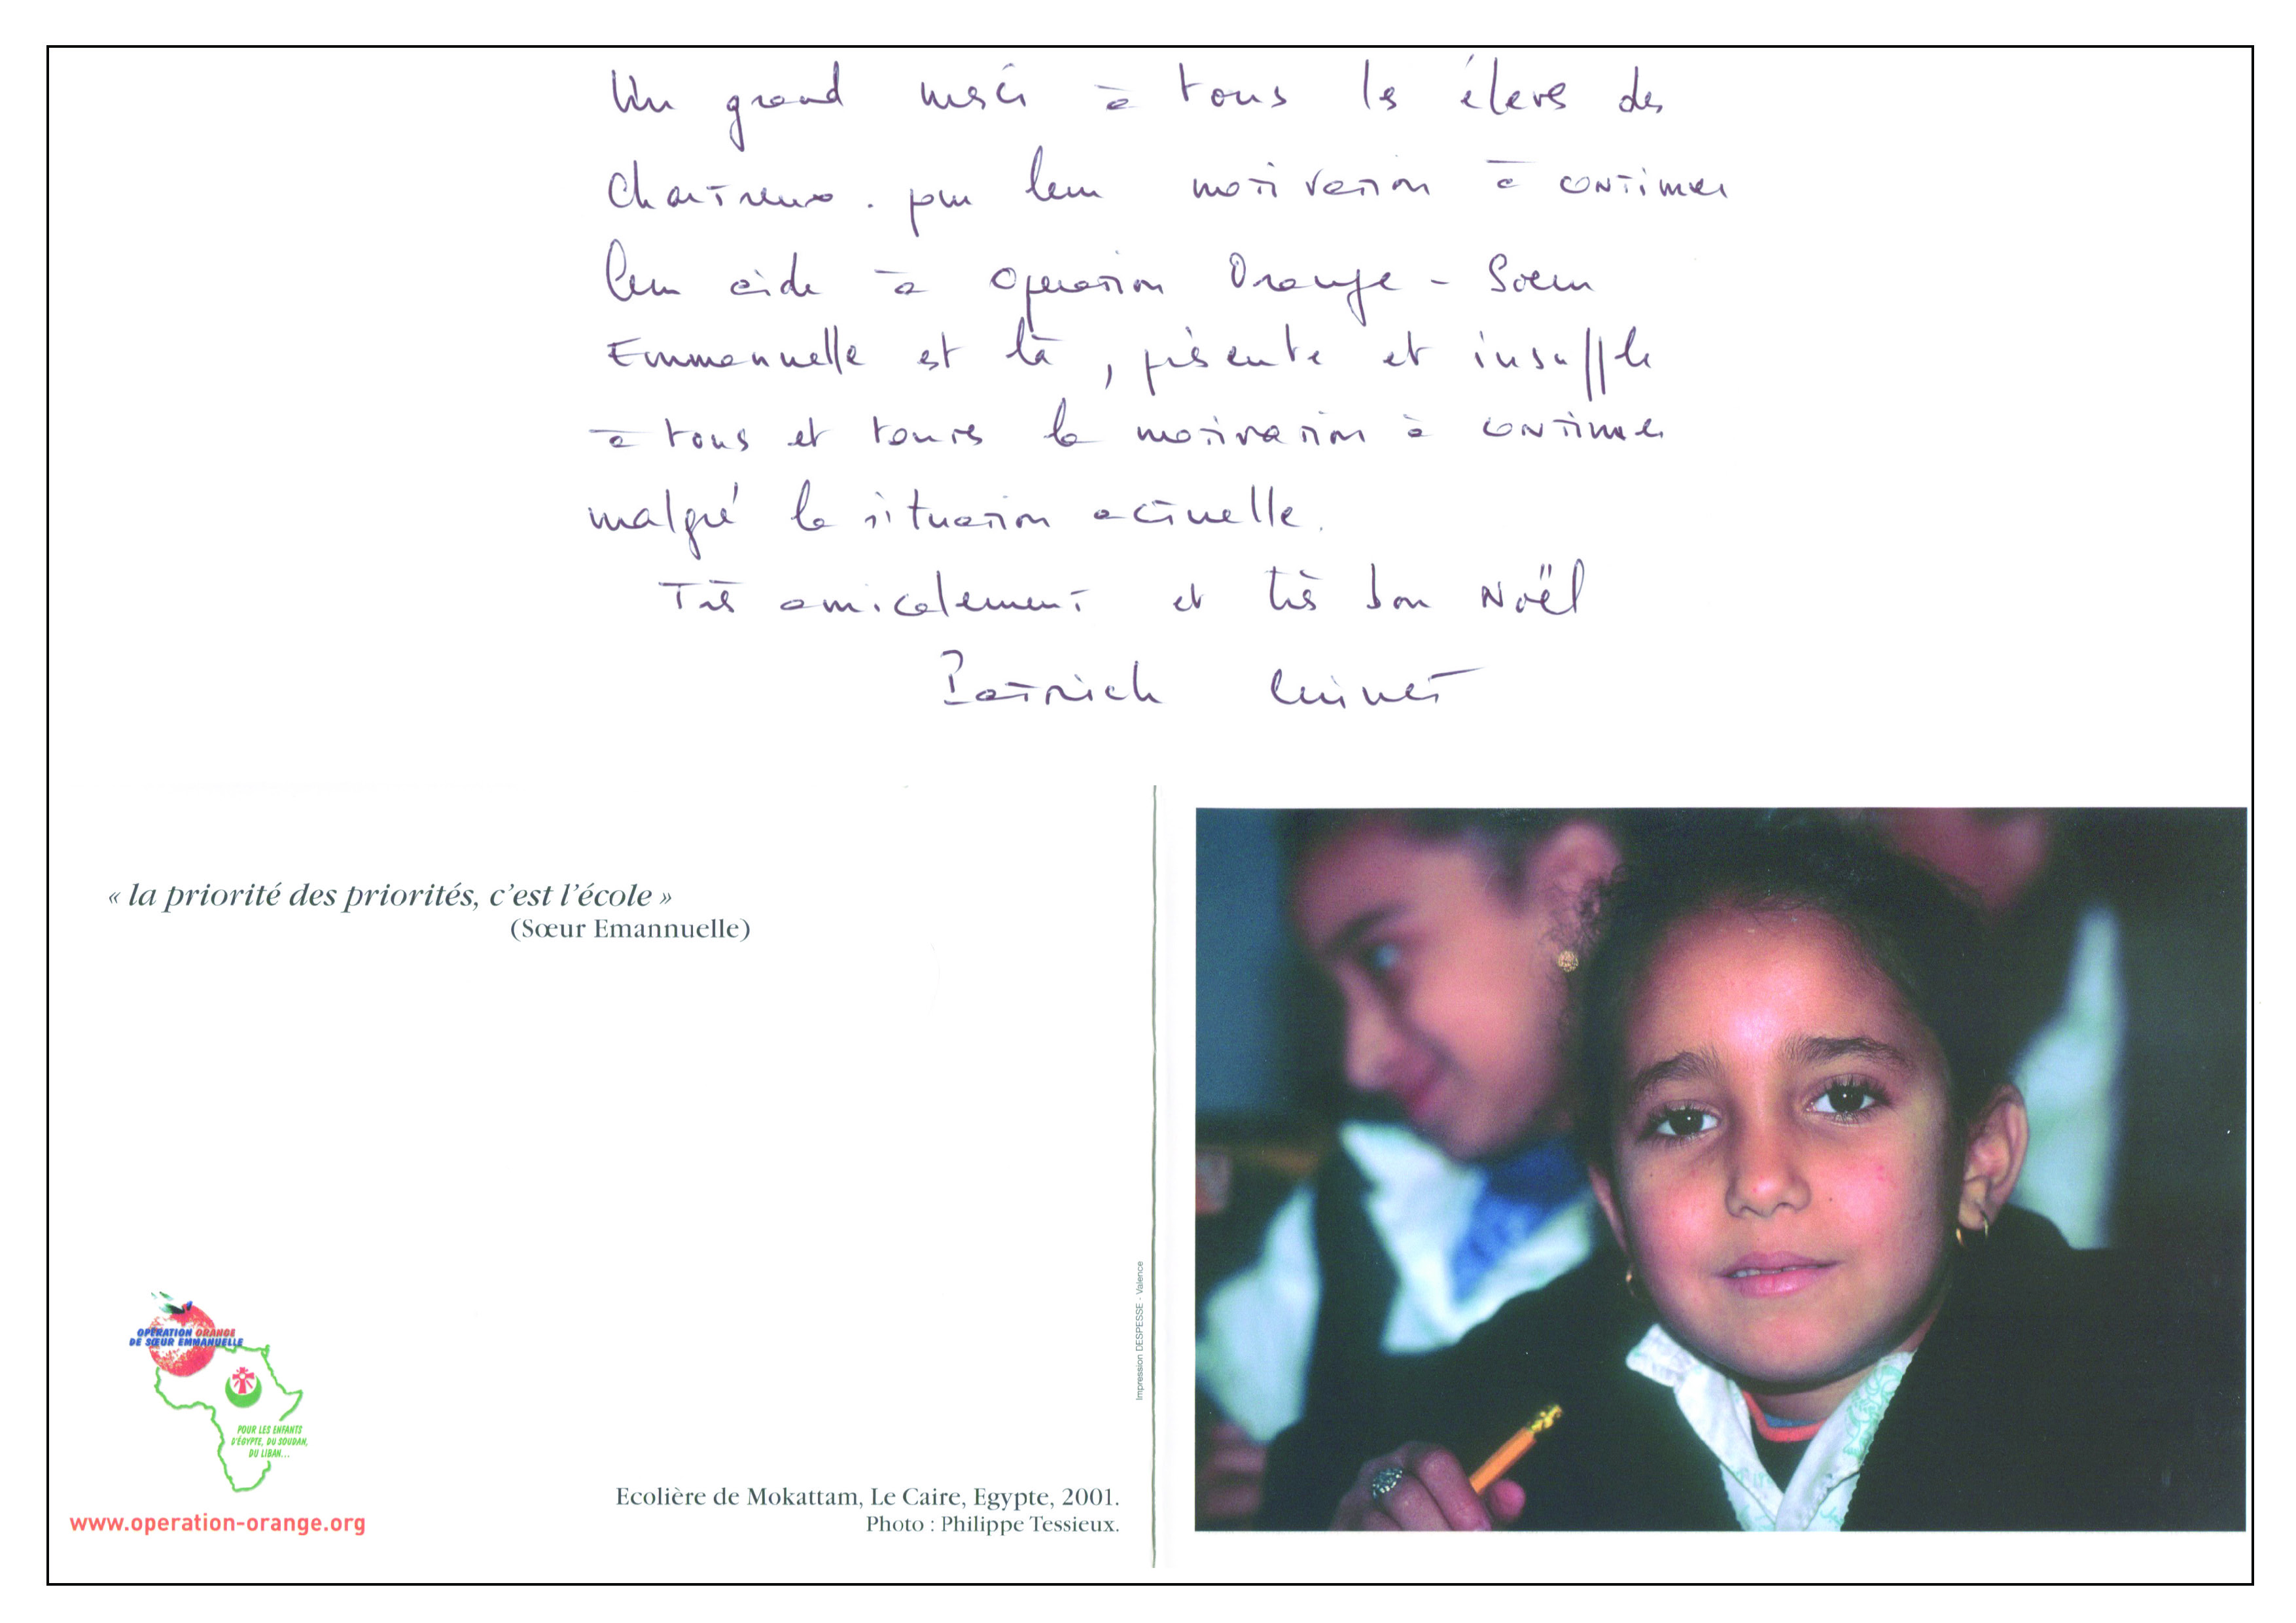 Un grand merci à tous les élèves des
Chartreux. pour leur motivation à continuer
leur aide à Opération Orange - Soeur
Emmanuelle est là, présente et insuffle
à tous et toutes la motivation à continuer
malgré la situation actuelle.
Très amicalement et très bon Noël
Patrick
« la priorité des priorités, c'est l'école »
(Sœur Emannuelle)
OPÉRATION ORANGE
DE SŒUR EMMANUELLE
POUR LES ENFANTS
D'ÉGYPTE, DU SOUDAN,
DU LIBAN...
www.operation-orange.org
Ecolière de Mokattam, Le Caire, Egypte, 2001.
Photo : Philippe Tessieux.
Impression DESPESSE - Valence